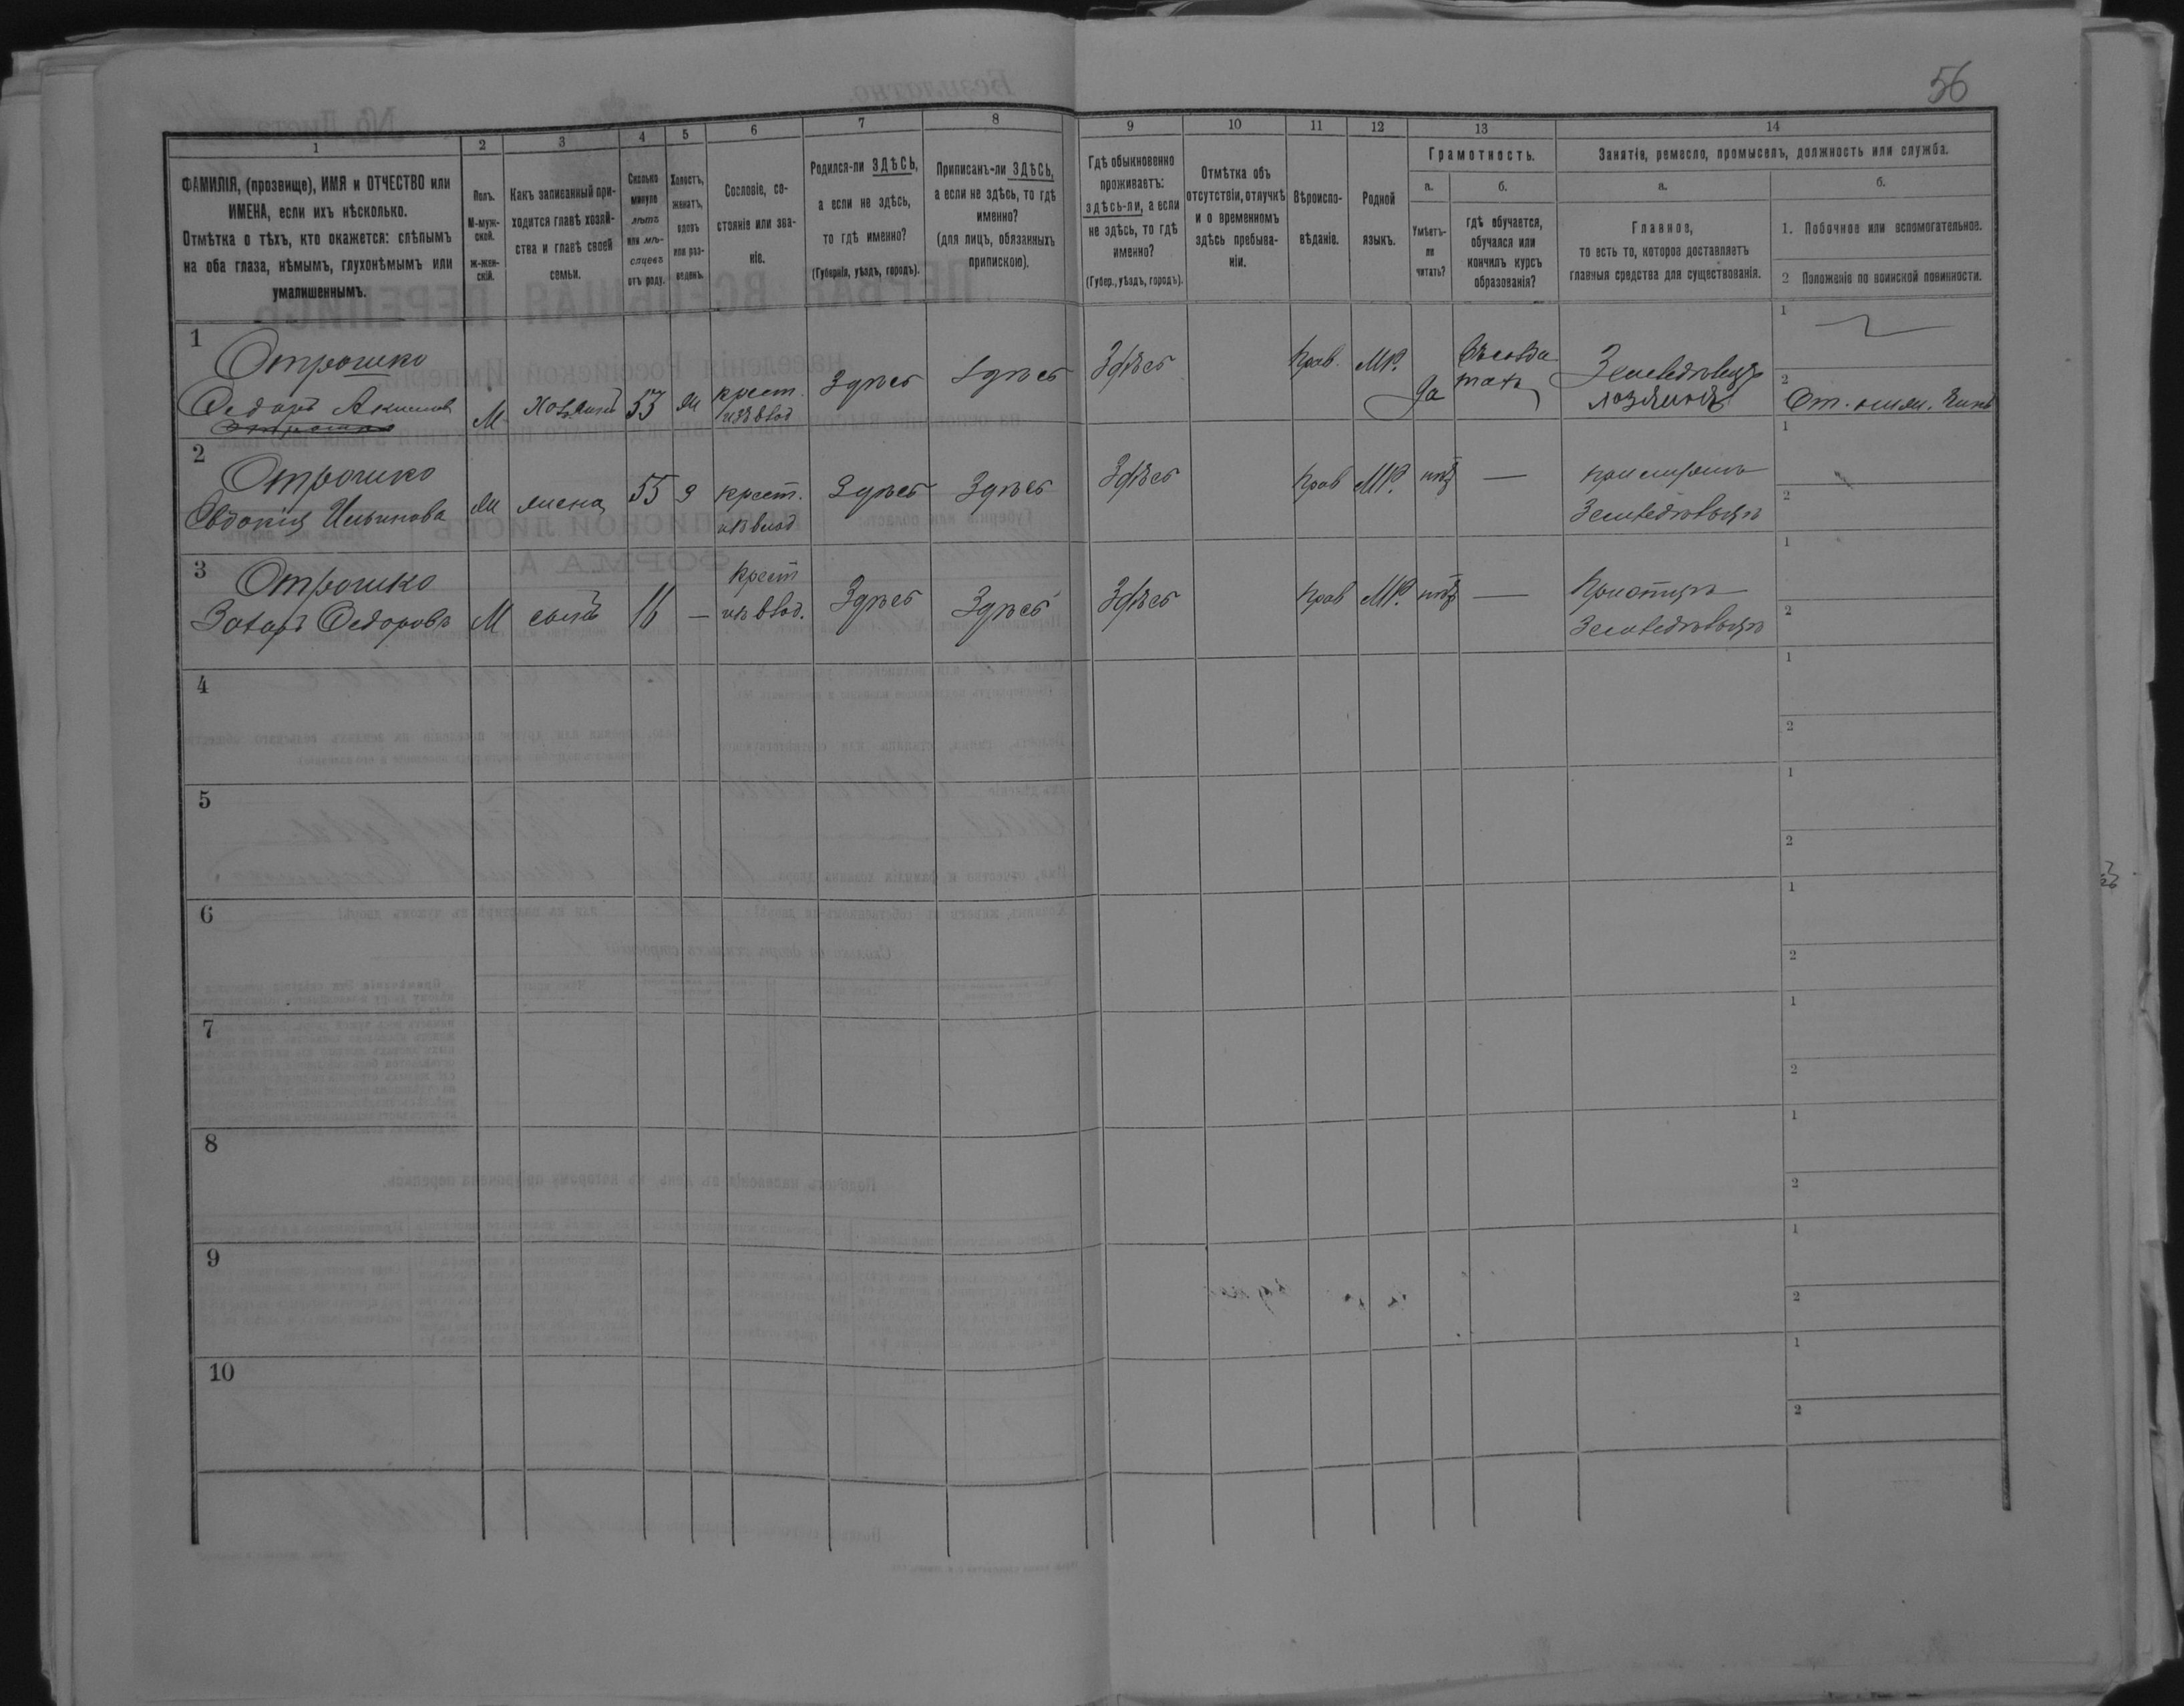 56
1
2
3
4
5
6
7
8
9
10
11
12
13
14
ФАМИЛІЯ, (прозвище), ИМЯ и ОТЧЕСТВО или
ИМЕНА, если ихъ нѣсколько.
Отмѣтка о тѣхъ, кто окажется: слѣпымъ
на оба глаза, нѣмымъ, глухонѣмымъ или
умалишеннымъ.
Полъ.
М-муж-
ской.
ж-жен-
скій.
Какъ записанный при-
ходится главѣ хозяй-
ства и главѣ своей
семьи.
Сколько
минуло
лѣтъ
или мѣ-
сяцевъ
отъ роду.
Холостъ,
женатъ,
вдовъ
или раз-
веденъ.
Сословіе, со-
стояніе или зва-
ніе.
Родился-ли ЗДѢСЬ,
а если не здѣсь,
то гдѣ именно?
(Губернія, уѣздъ, городъ).
Приписанъ-ли ЗДѢСЬ,
а если не здѣсь, то гдѣ
именно?
(для лицъ, обязанныхъ
припискою).
Гдѣ обыкновенно
проживаетъ:
здѣсь-ли, а если
не здѣсь, то гдѣ
именно?
(Губер., уѣздъ, городъ).
Отмѣтка объ
отсутствіи, отлучкѣ
и о временномъ
здѣсь пребыва-
ніи.
Вѣроиспо-
вѣданіе.
Родной
языкъ.
Грамотность.
а.
Умѣетъ-
ли
читать?
б.
гдѣ обучается,
обучался или
кончилъ курсъ
образованія?
Занятія, ремесло, промыселъ, должность или служба.
а.
Главное,
то есть то, которое доставляетъ
главныя средства для существованія.
б.
1. Побочное или вспомогательное.
2 Положеніе по воинской повинности.
1
Отрошко
Федоръ Акимовъ
М
Хозяинъ
53
крест.
изъ влад
Здѣсь
Здѣсь
Здѣсь
Прав.
МР.
Да
Земледѣлецъ
хозяинъ
1
2
2
Отрошко
Евдокія
жена
55
З
крест.
изъ влад
Здѣсь
Здѣсь
Здѣсь
Прав
МР.
нѣтъ
—
Земледѣльцѣ
1
2
3
Отрошко
Захаръ Федоровъ
М
сынъ
16
—
крест
изъ влад.
Здѣсь
Здѣсь
Здѣсь
Прав
МР.
нѣтъ
—
Земледѣльцѣ
1
2
4
1
2
5
1
2
6
1
2
7
1
2
8
1
2
9
1
2
10
1
2